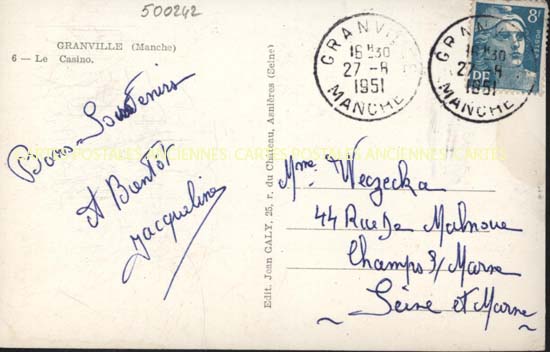 500242
GRANVILLE (Manche)
6 - Le Casino.
Bons Souvenirs
A Bientôt
Jacqueline
Edit. Jean CALY, 25, r. du Château, Asnières (Seine)
GRANVILLE
16 H30
27-8
1951
MANCHE
GRANVILLE
16 H30
27-8
1951
MANCHE
8F
POSTES
Mme Weczecka
44 Rue De Malnoue
Champs s/ Marne
~ Seine et Marne ~
CARTES POSTALES ANCIENNES CARTES POSTALES ANCIENNES CARTES